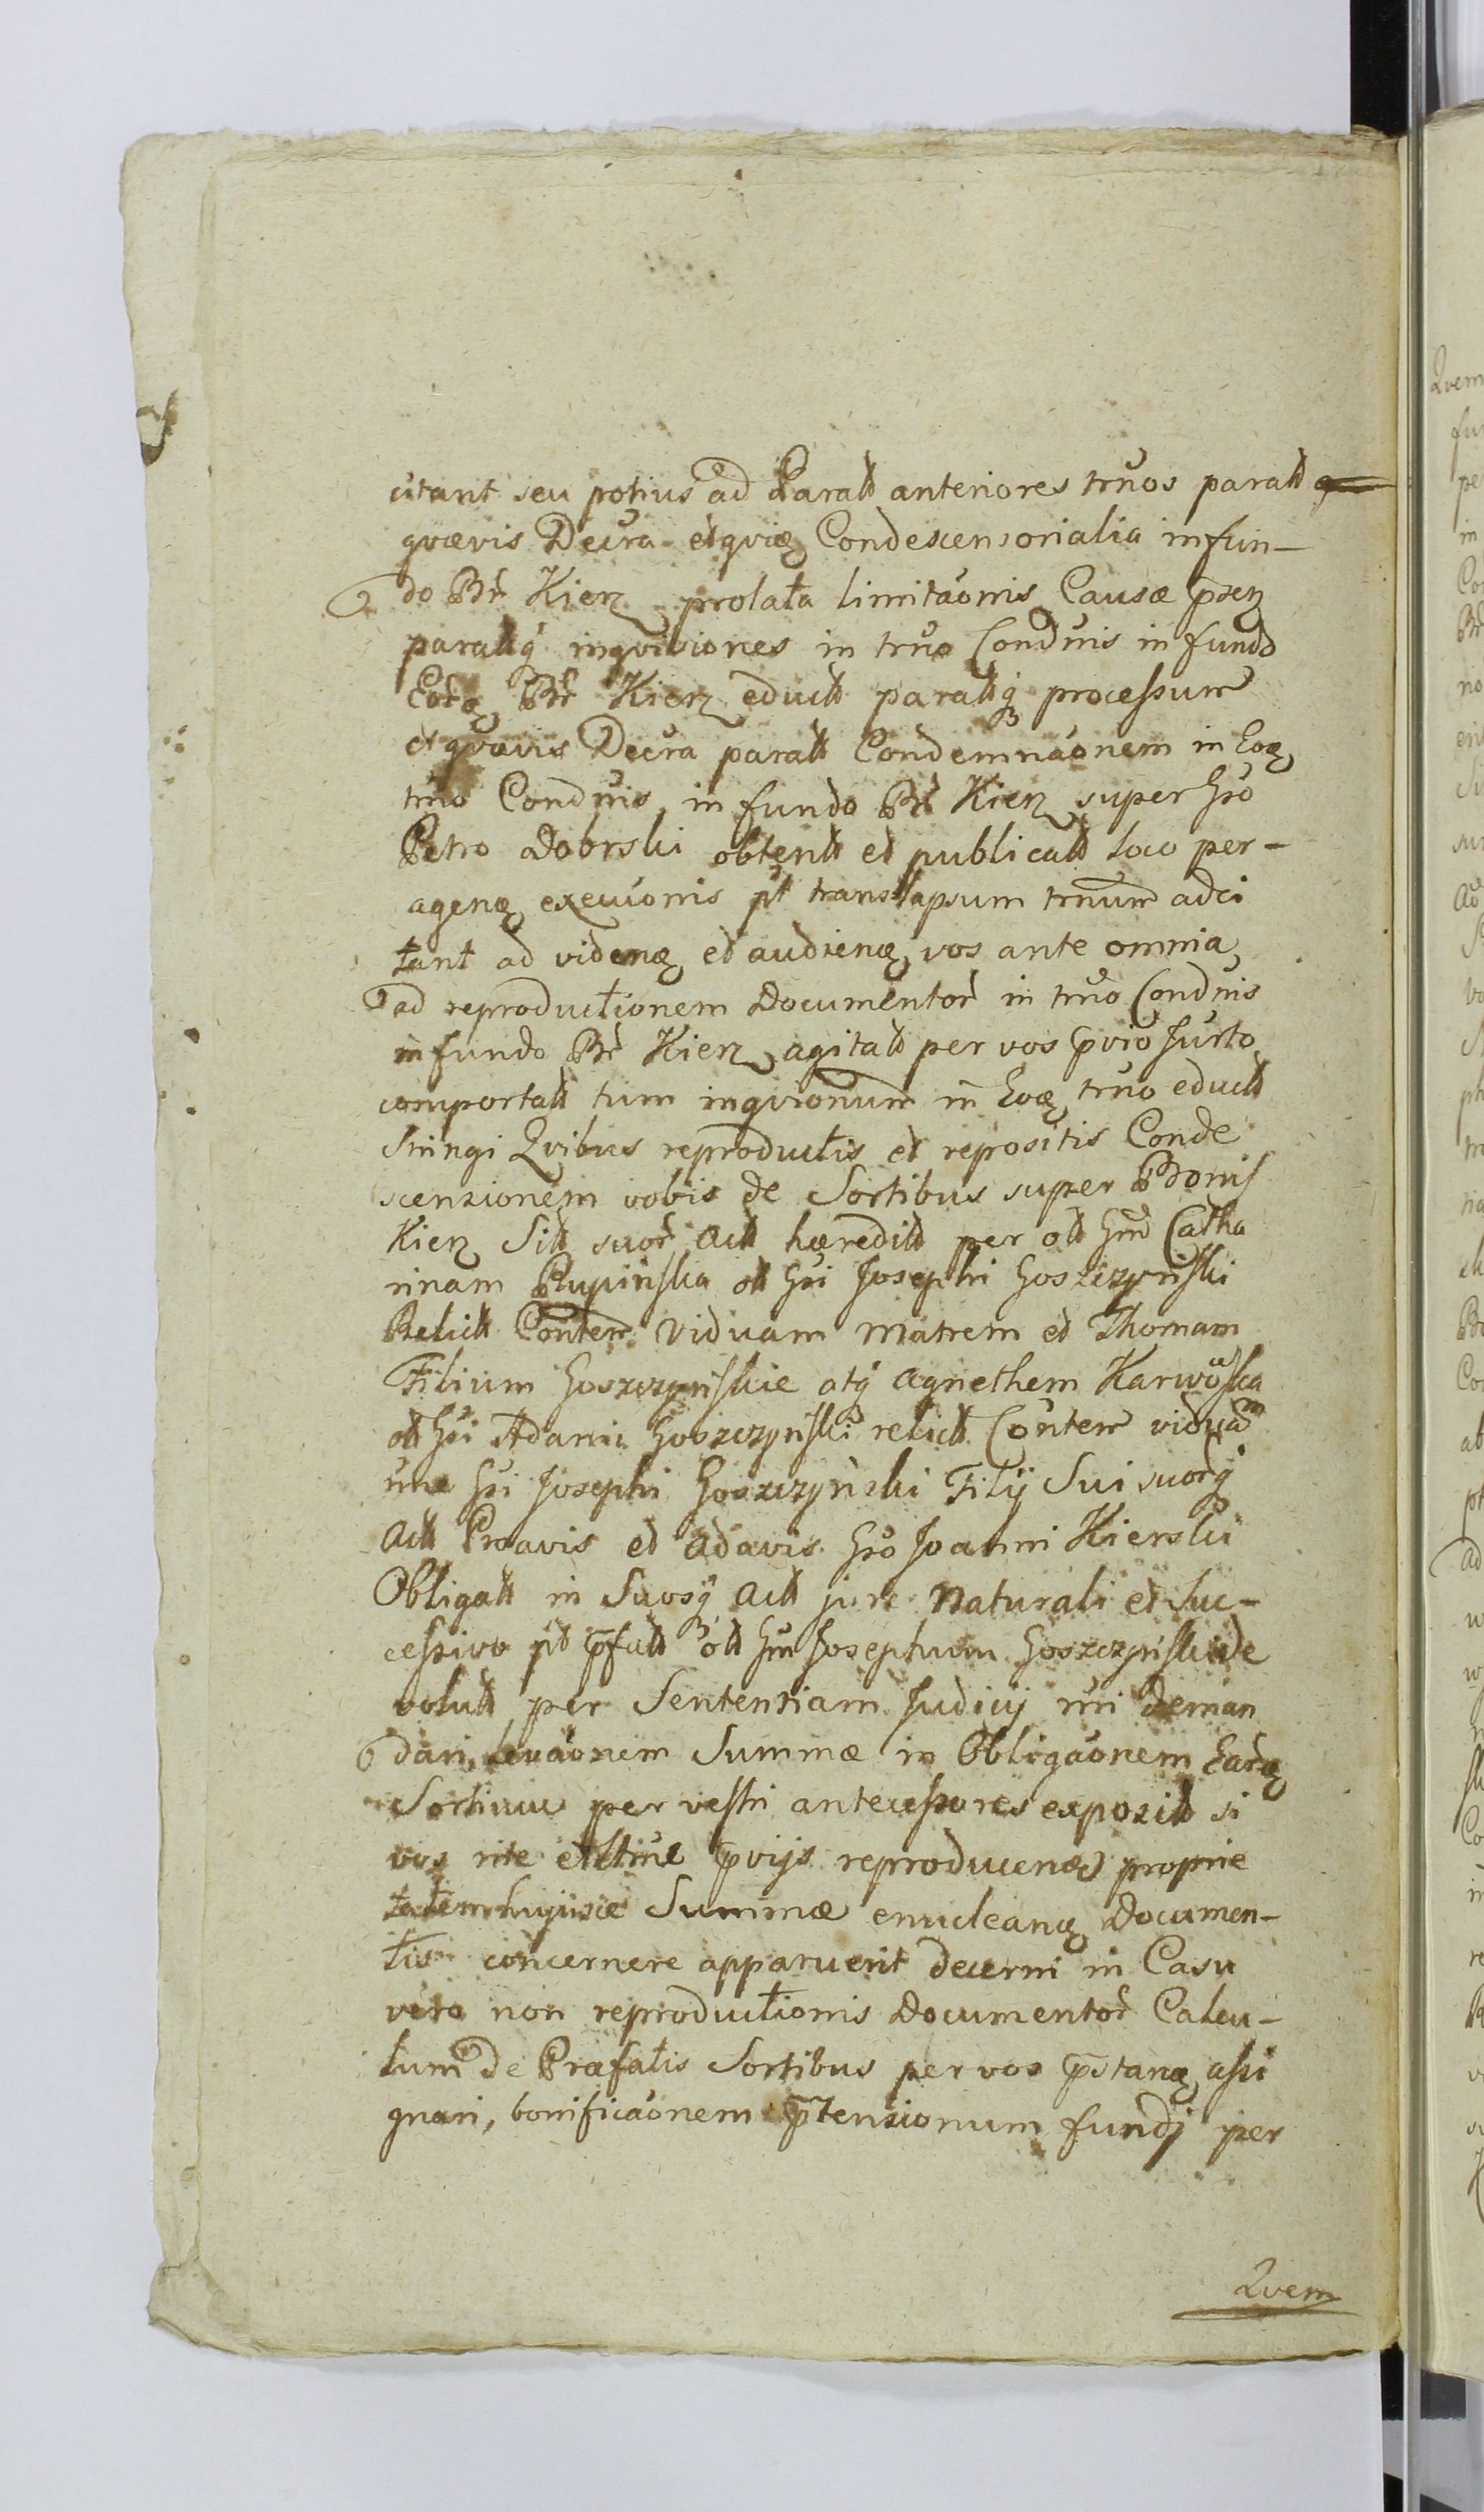 citant seu potius ad Paratt anteriores trnos paratt
qvævis Decra et qviæ Condescensorialia in fun-
do Br Kierz prolata limitaonis Causæ p̄sen
parattq inqvisiones in trno Conduis in fundo
Eorq Br Kierz eductt parattq processum
et qvævis Decra paratt Condemnaonem in Eoq
trno Conduis in fundo Br Kierz super Gso
Petro Dobrski obtentt et publicatt loco per-
agenq execuonis pt translapsum trnum adci
tant ad videnq et audienq vos ante omnia
ad reproductionem Documentor in trno Conduis
in fundo Br Kierz agitatt per vos p̄vio Jurto
comportatt tum inqvionum in Eoq trno eductt
stringi Qvibus reproductis et repositis Conde
scensionem vobis de Sortibus super Bonis
Kierz Sitt suor Actt hæreditt per ott Gm Catha
rinam Rupinska ott Gsi Josephi Goszczynski
Relictt Conter Viduam Matrem et Thomam
Filium Goszczynskie atq Agnethem Karwoska
ott Gsi Adami Goszczynski relictt Conter viduam
une Gsi Josephi Goszczynski Filij Sui suorq
Actt Proavis et Adavis Gso Joanni Kierski
Obligatt in Suosq Actt jure Naturali et Suc-
cessivo pt p̄fatt ott Gm Josephum Goszczynski de
volutt per Sententiam Judicij nri deman
dari, levaonem Summæ in Obligaonem Earq
Sortium per vestri antecessores expositt si
vos rite et ltme p̄vijs reproducenq proprie
tatem hujusce Summæ enucleanq Documen-
tis concernere apparuerit decerni in Casu
vero non reproductionis Documentor Calcu-
lum de Præfatis Sortibus per vos p̄stanq assi
gnari, bonificaonem p̄tensionum fundj per
Qvem